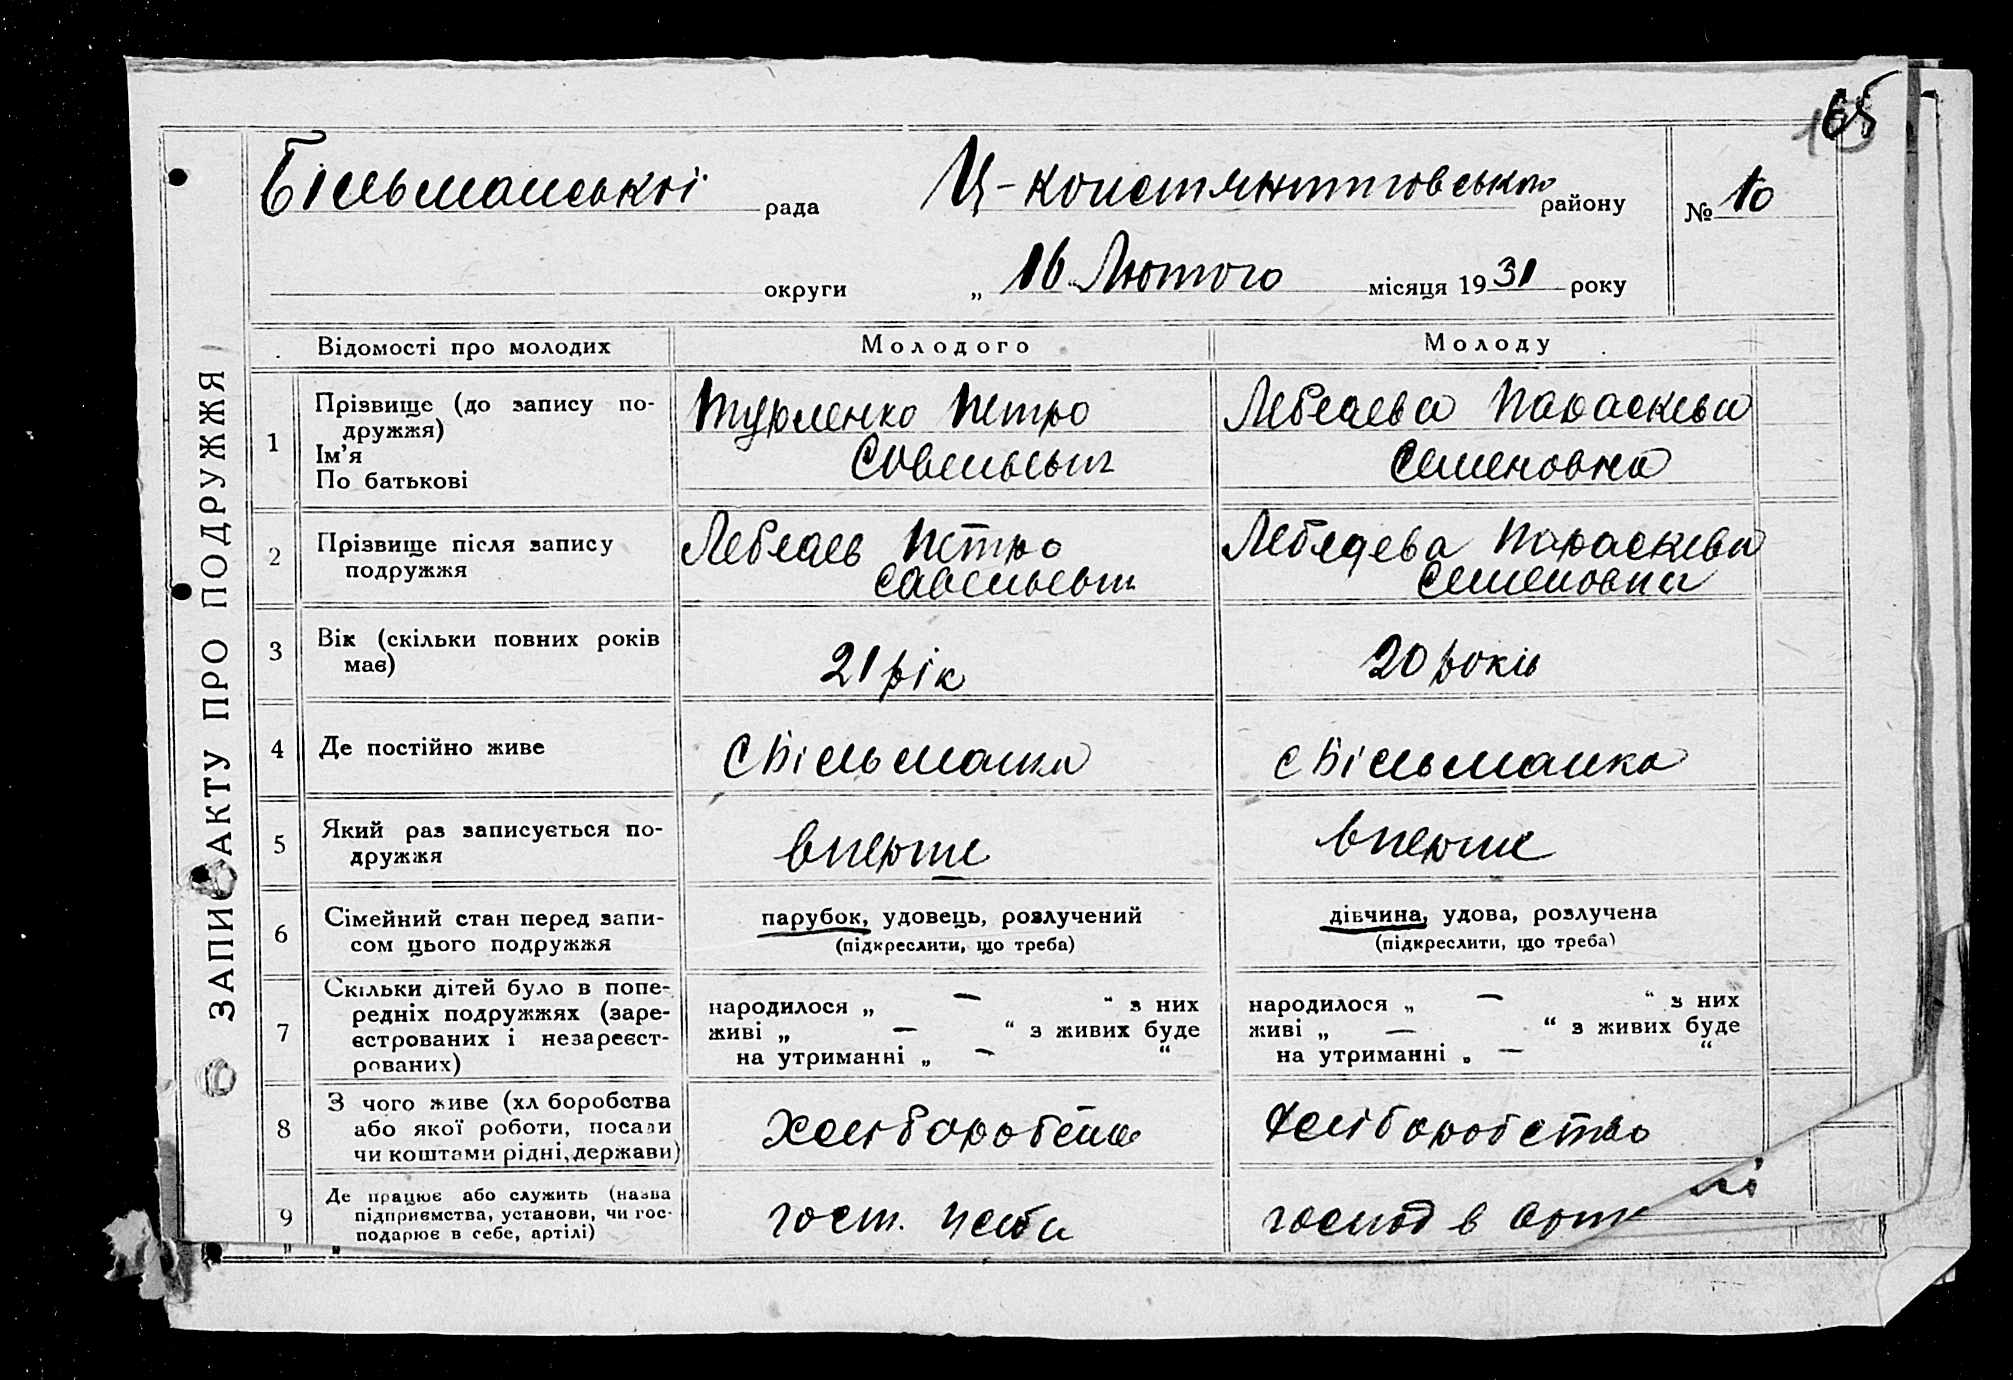 65
Більманської рада Ц-Констянтиновського району № 10
округи „ 16 " Лютого місяця 1931 року
ЗАПИС АКТУ ПРО ПОДРУЖЖЯ
Відомості про молодих Молодого Молоду
1 Прізвище (до запису по-
дружжя)
Ім'я
По батькові
Турленко Петро
Савельевич
Лебедева Параскева
Семеновна
2 Прізвище після запису
подружжя
Лебедев Петро
Савельевич
Лебедева Параскева
Семеновна
3 Вік (скільки повних років
має)
21 рік
20 років
4 Де постійно живе
с Більманка
с Більманка
5 Який раз записується по-
дружжя
вперше
вперше
6 Сімейний стан перед запи-
сом цього подружжя
парубок, удовець, розлучений
(підкреслити, що треба)
дівчина, удова, розлучена
(підкреслити, що треба)
7 Скільки дітей було в попе-
редніх подружжях (заре-
єстрованих і незареєст-
рованих)
народилося „ — " з них
живі „ — " з живих буде
на утриманні „ — "
народилося „ — " з них
живі „ — " з живих буде
на утриманні „ — "
8 З чого живе (хл боробства
або якої роботи, посади
чи коштами рідні, держави)
Хліборобство
Хліборобство
9 Де працює або служить (назва
підприємства, установи, чи гос-
подарює в себе, артілі)
госп.
господ в арт